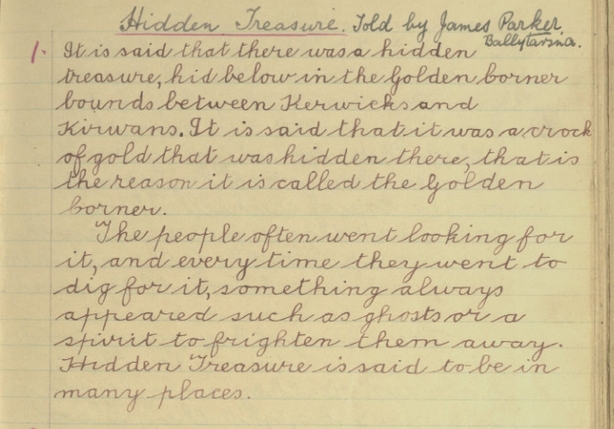 Hidden Treasure. Told by James Parker,
Ballytarsna.
1. It is said that there was a hidden
treasure, hid below in the Golden Corner
bounds between Kerwicks and
Kirwans. It is said that it was a crock
of gold that was hidden there, that is
the reason it is called the Golden
Corner.
The people often went looking for
it, and every time they went to
dig for it, something always
appeared such as ghosts or a
spirit to frighten them away.
Hidden Treasure is said to be in
many places.